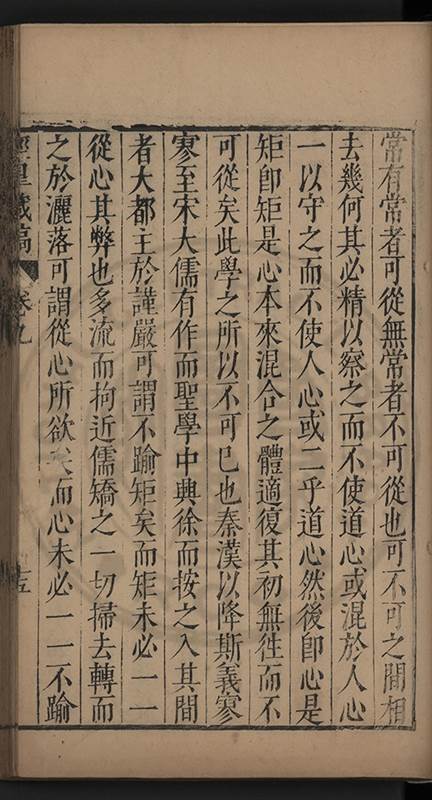 常有常者可從無常者不可從也可不可之間相
去幾何其必精以察之而不使道心或混於人心
一以守之而不使人心或二乎道心然後卽心是
矩卽矩是心本來混合之體適復其初無徃而不
可從矣此學之所以不可已也秦漢以降斯義寥
寥至宋大儒有作而聖學中興徐而按之入其間
者大都主於謹嚴可謂不踰矩矣而矩未必一一
從心其弊也多流而拘近儒矯之一切掃去轉而
之於灑落可謂從心所欲矣而心未必一一不踰
涇臯藏稿 卷九 十五